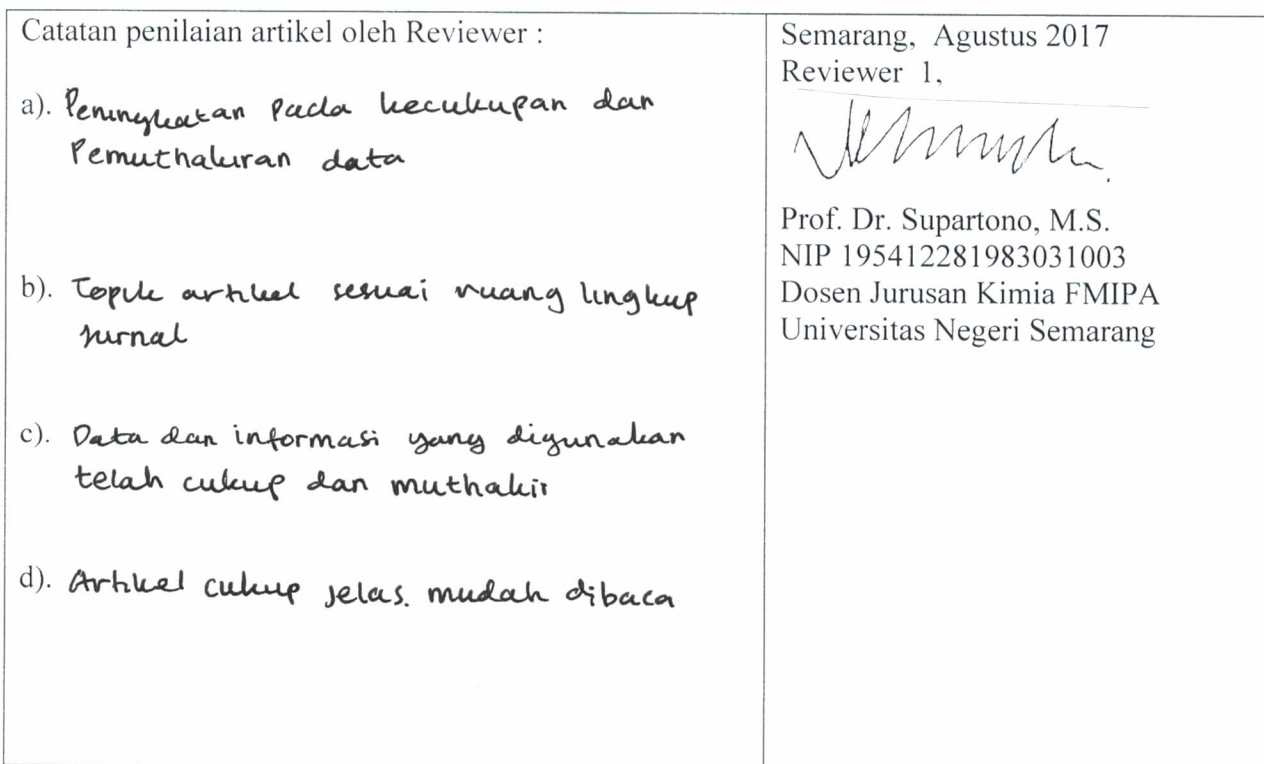 Catatan penilaian artikel oleh Reviewer :
a). Peningkatan pada kecukupan dan
Pemuthakiran data
b). Topik artikel sesuai ruang lingkup
jurnal
c). Data dan informasi yang digunakan
telah cukup dan muthakir
d). Artikel cukup jelas. mudah dibaca
Semarang, Agustus 2017
Reviewer 1,
Prof. Dr. Supartono, M.S.
NIP 195412281983031003
Dosen Jurusan Kimia FMIPA
Universitas Negeri Semarang